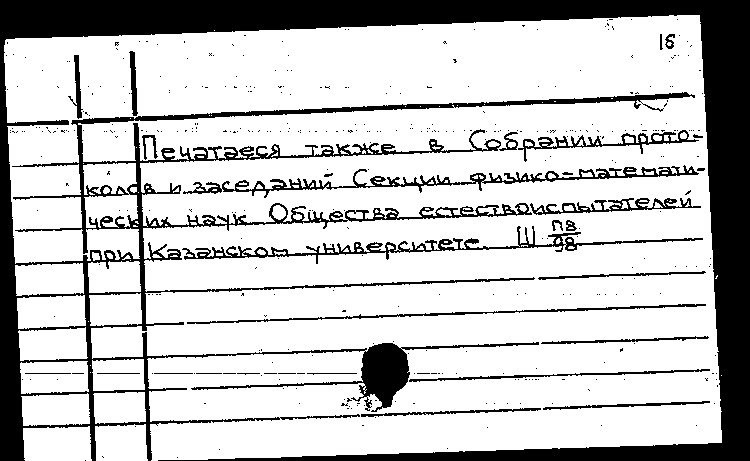 16
Печатаеся также в Собрании прото-
колов и заседаний Секции физико-математи-
ческих наук Общества естествоиспытателей
при Казанском университете. Ш П8/98